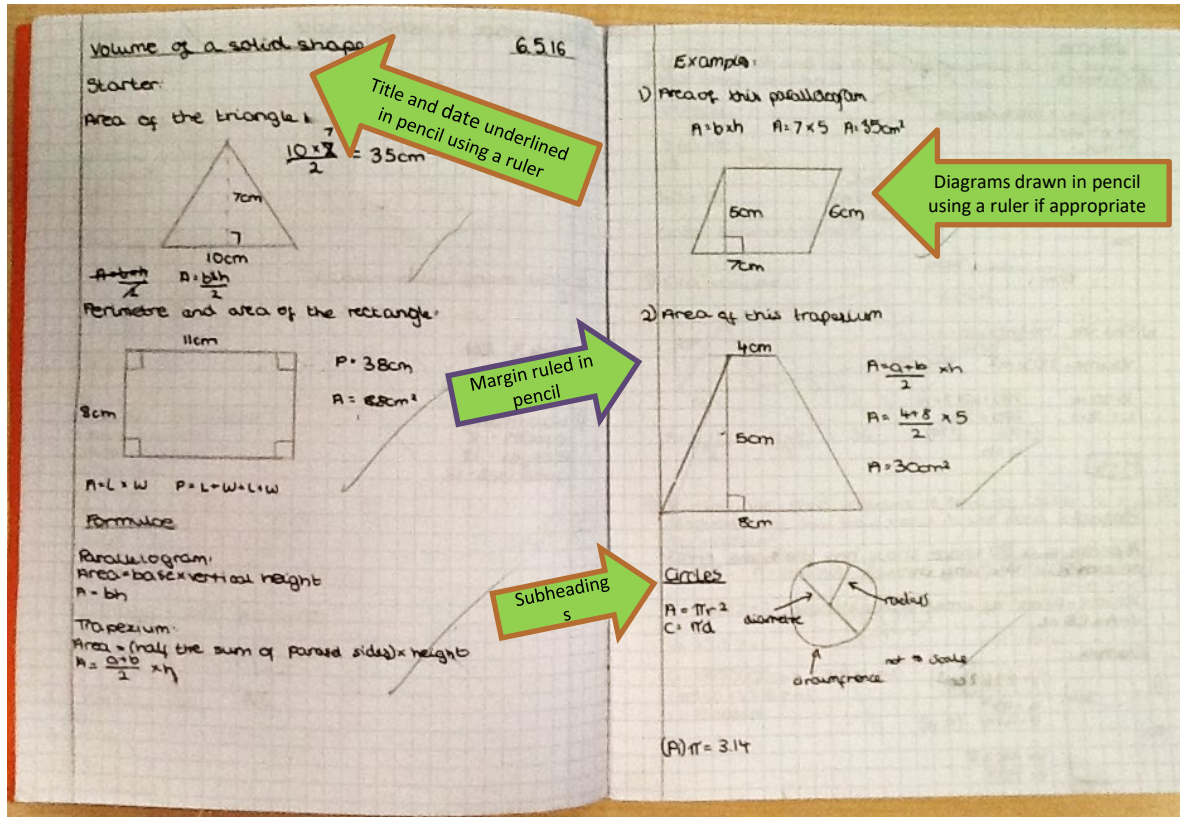 Volume of a solid shape 6.5.16
Starter:
Title and date underlined
in pencil using a ruler
Area of the triangle
10 x 7 7
2
= 35cm
7cm
7
10cm
A=b+h
2
A=bxh
2
Perimetre and area of the rectangle:
11cm
8cm
P= 38cm
A= 88cm²
A=L x W P=L+W+L+W
Formulae
Parallelogram:
Area=base x vertical height
A=bh
Trapezium:
Area=(half the sum of parallel sides) x height
A= a+b x h
2
Margin ruled in
pencil
Subheading
s
Example:
1) Area of this parallelogram
A=bxh A=7x5 A=35cm²
5cm
6cm
7cm
Diagrams drawn in pencil
using a ruler if appropriate
2) Area of this trapezium
4cm
5cm
8cm
A=a+b xh
2
A= 4+8 x 5
2
A=30cm²
Circles
A=πr²
C=πd
diametre
radius
circumfrence
not to scale
(A)π=3.14